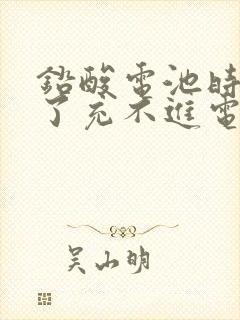 鉛酸電池時
了充不進電
吴山明